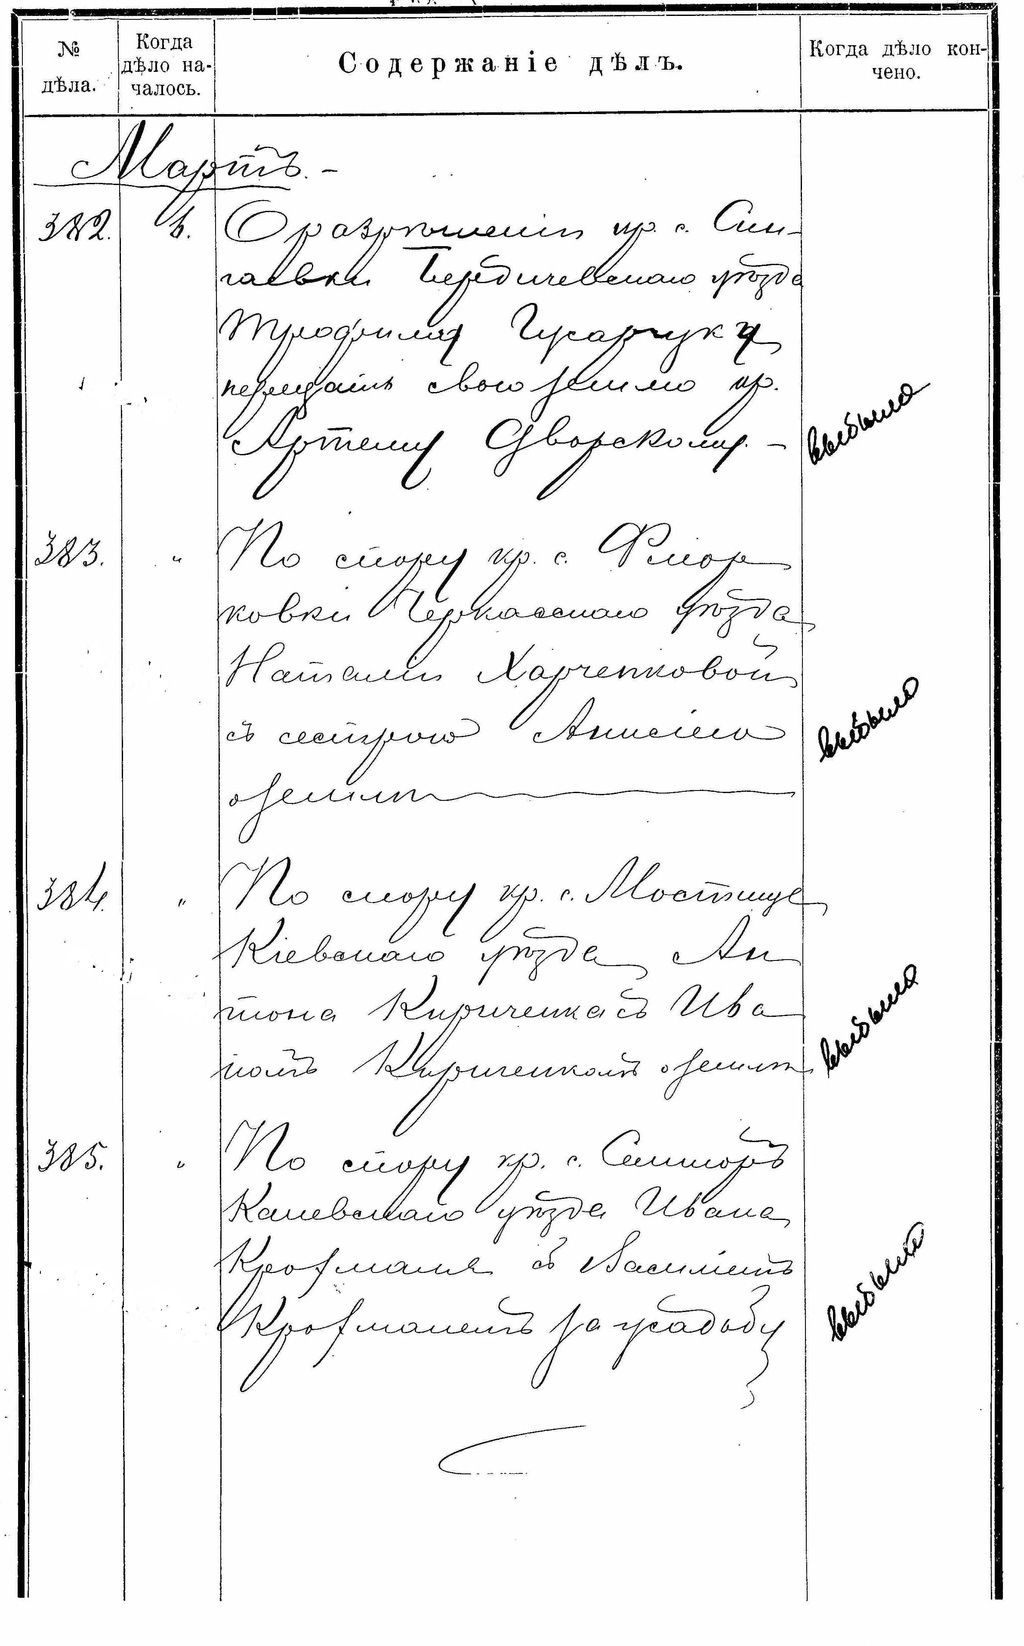 № дѣла.
Когда дѣло на-
чалось.
Содержаніе дѣлъ.
Когда дѣло кон-
чено.
Мартъ. -
382. 6. О разрѣшеніи кр. с. Син-
гаевки Бердичевскаго уѣзда
Трофиму Гусарчуку
передать свою землю кр.
Артему Дворскому. -
выбыло
383. " По спору кр. с. Флор
ковки Черкасскаго уѣзда
Наталіи Харченковой
съ сестрою Анисіею
о землѣ
выбыло
384. " По спору кр. с. Мостище
Кіевскаго уѣзда Ан
тона Кириченка съ Ива
номъ Кириченкомъ о землѣ
выбыло
385. " По спору кр. с.
Каневскаго уѣзда Ивана
Крофманя съ Василіемъ
Крофманемъ за усадьбу
выбыло